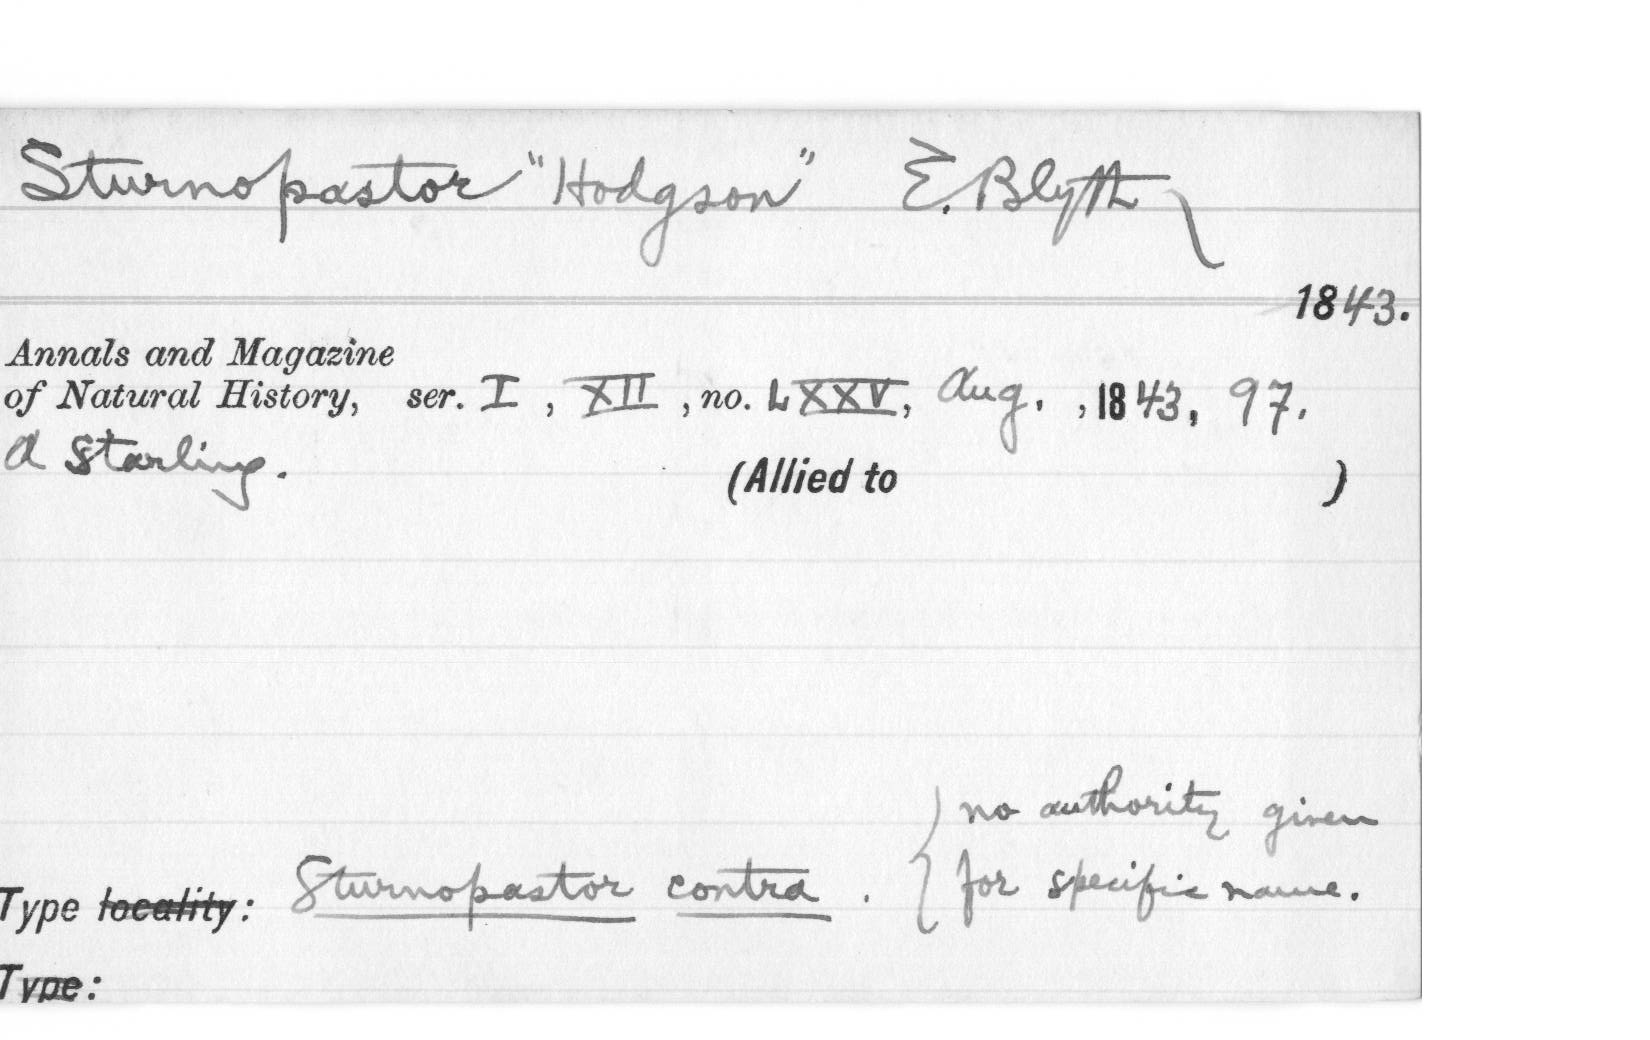 Sturnopastor "Hodgson" E. Blyth
1843.
Annals and Magazine
of Natural History, ser. I, XII, no. LXXV, Aug. , 1843, 97.
A Starling.
(Allied to )
no authority given
Type locality: Sturnopastor contra . { for specific name.
Type: